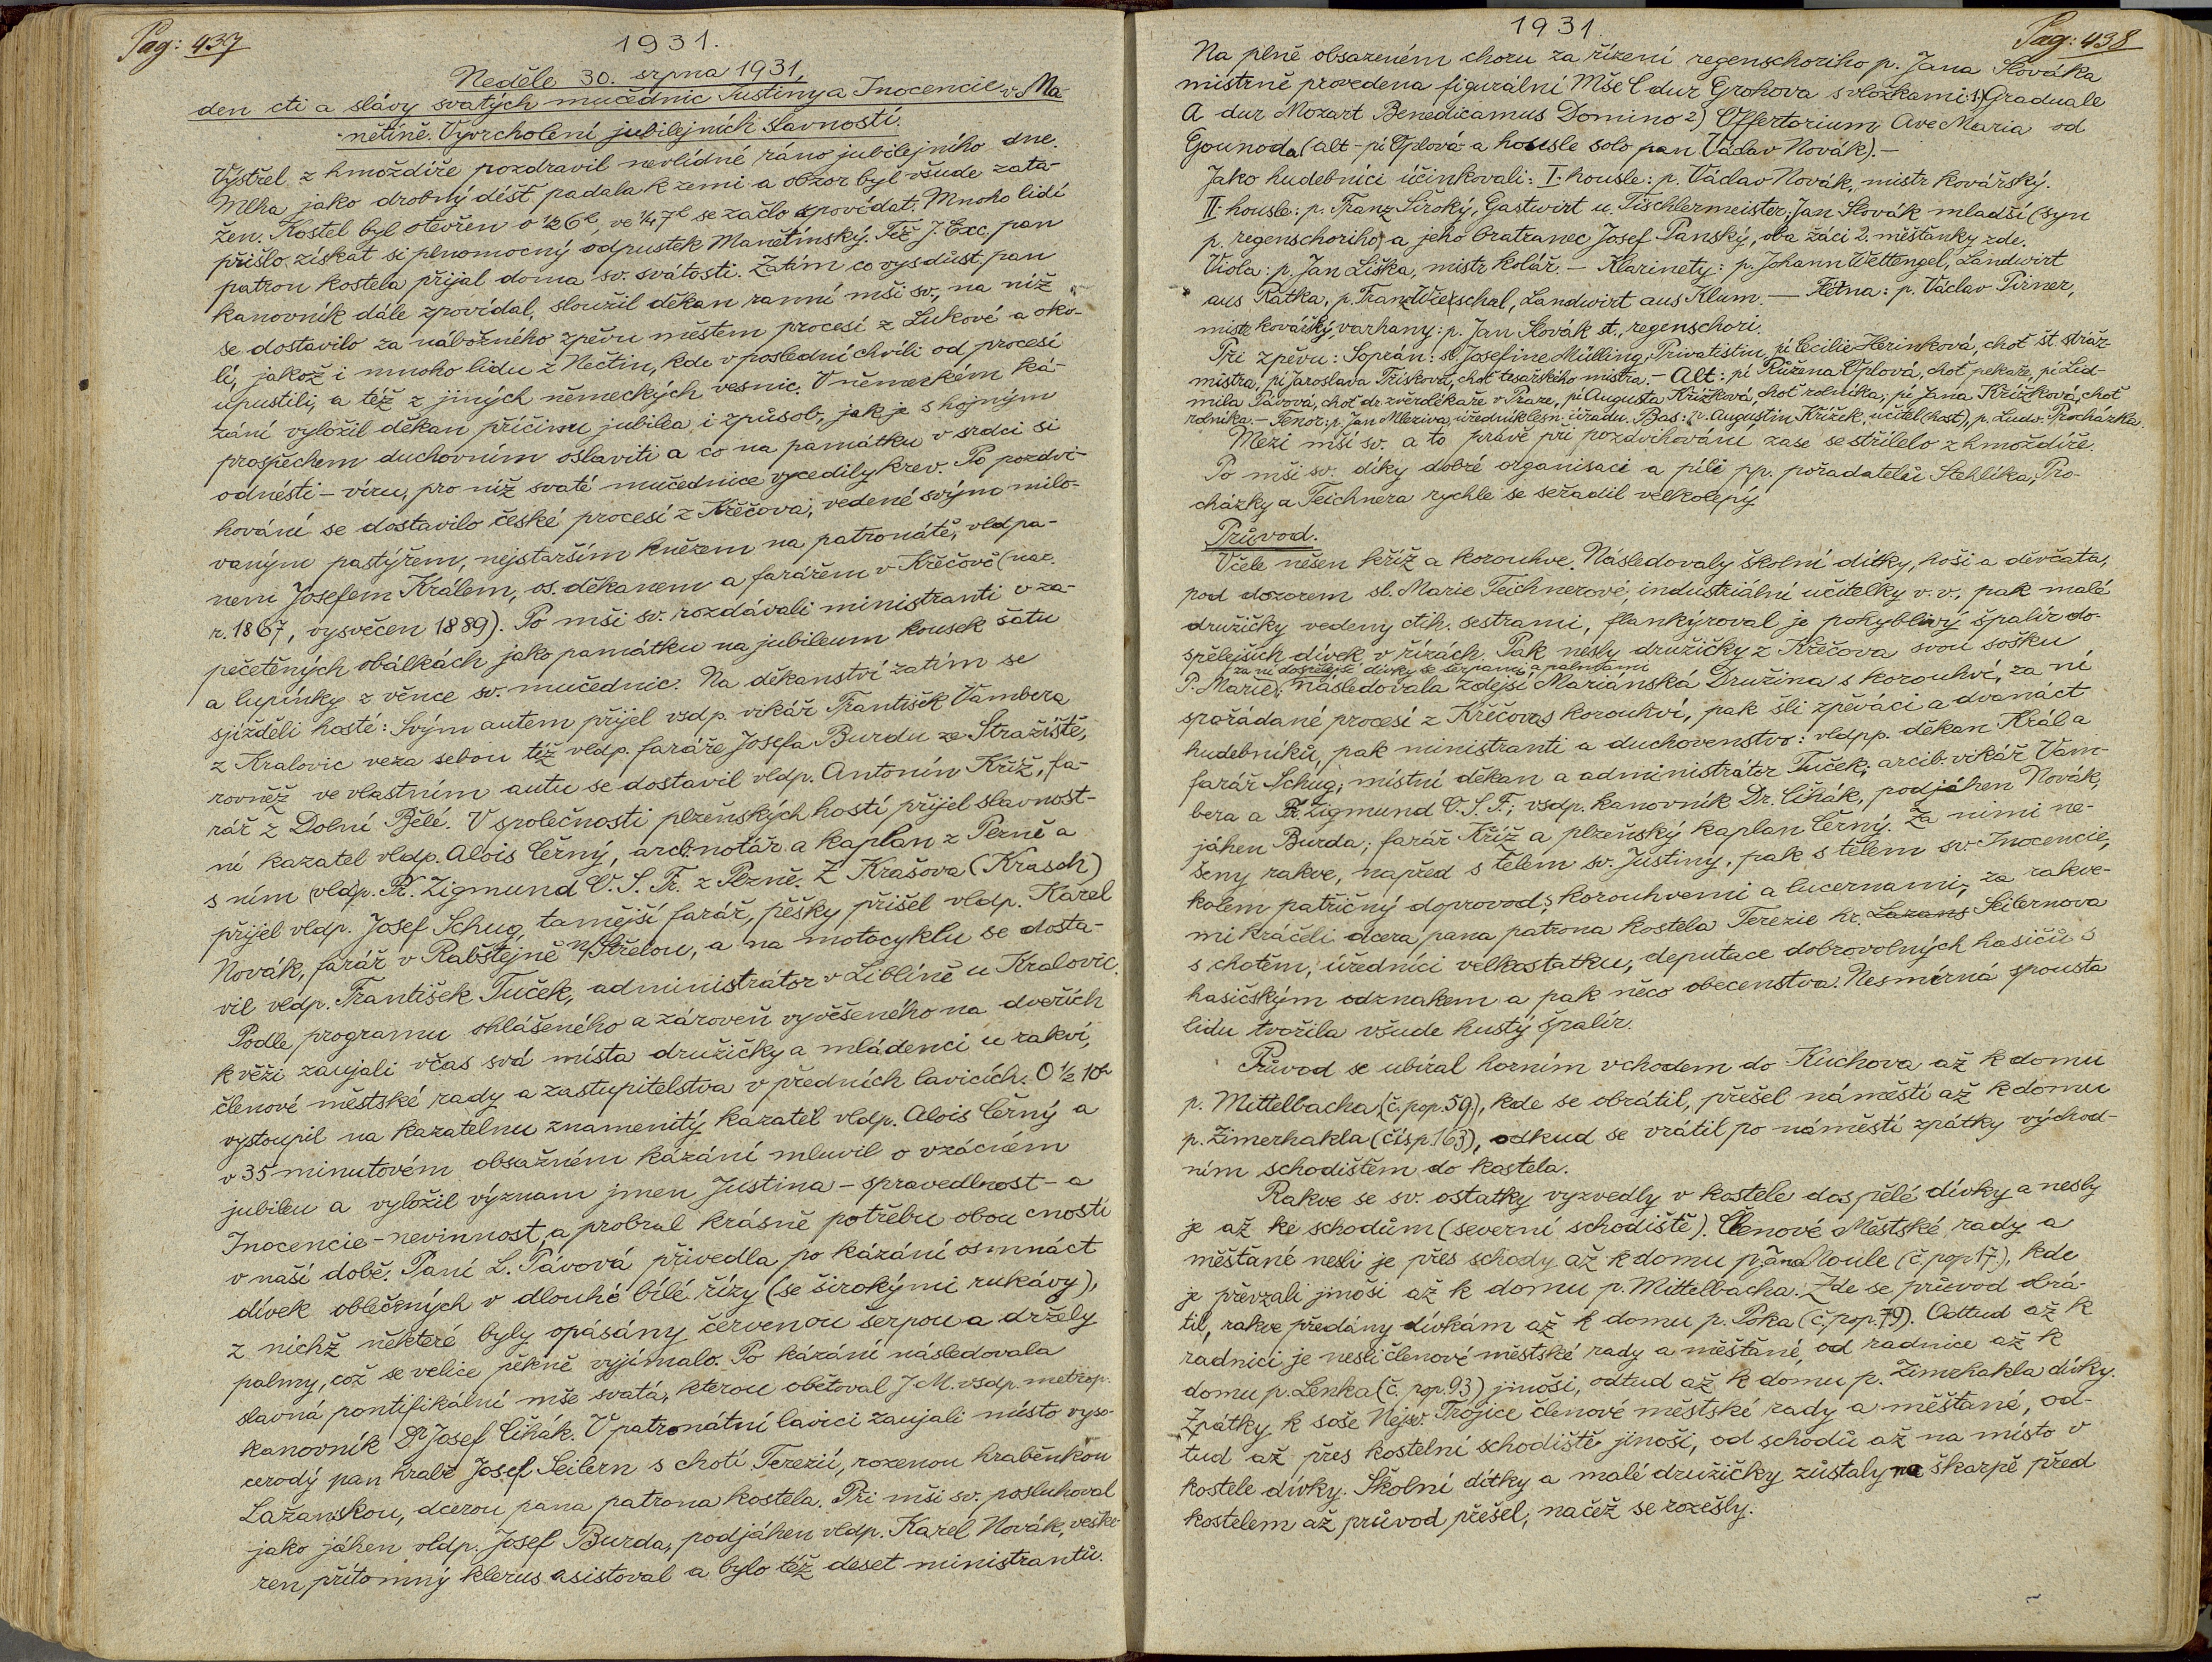 Pag: 437
1931.
Neděle 30. srpna 1931,
den cti a slávy svatých mučednic Justiny a Inocencie v Ma-
nětíně. Vyvrcholení jubilejních slavností.
Výstřel z hmoždíře pozdravil nevlídné ráno jubilejního dne.
Mlha jako drobný déšť padala k zemi a obzor byl všude zata-
žen. Kostel byl otevřen o ½6h, ve ¼7h se začlo zpovídat. Mnoho lidí
přišlo získat si plnomocný odpustek Manětínský. Též J. Exc. pan
patron kostela přijal doma sv. svátosti. Zatím co vysdůst. pan
kanovník dále zpovídal, sloužil děkan ranní mši sv., na níž
se dostavilo za nábožného zpěvu městem procesí z Lukové a oko-
lí, jakož i mnoho lidu z Nečtin, kde v poslední chvíli od procesí
upustili, a též z jiných německých vesnic. V německém ká-
zání vyložil děkan příčinu jubilea i způsob, jak je s hojným
prospěchem duchovním oslaviti a co na památku v srdci si
odnésti – víru, pro niž svaté mučednice vycedily krev. Po pozdvi-
hování se dostavilo české procesí z Křečova, vedené svým milo-
vaným pastýřem, nejstarším knězem na patronátě, vldp. pa-
nem Josefem Králem, os. děkanem a farářem v Křečově (nar.
r. 1867, vysvěcen 1889). Po mši sv. rozdávali ministranti v za-
pečetěných obálkách jako památku na jubileum kousek šatu
a lupínky z věnce sv. mučednic. Na děkanství zatím se
sjížděli hosté: Svým autem přijel vsdp. vikář František Vambera
z Kralovic veza sebou též vldp. faráře Josefa Burdu ze Stražiště,
rovněž ve vlastním autu se dostavil vldp. Antonín Kříž, fa-
rář z Dolní Bělé. V společnosti plzeňských hostí přijel slavnost-
ní kazatel vldp. Alois Černý, arcb. notář a kaplan z Plzně a
s ním vldp. P. Zigmund O. S. Fr. z Plzně. Z Krašova (Krasch)
přijel vldp. Josef Schug, tamější farář, pěšky přišel vldp. Karel
Novák, farář v Rabštejně n/Střelou, a na motocyklu se dosta-
vil vldp. František Tuček, administrátor v Liblíně u Kralovic.
Podle programu ohlášeného a zároveň vyvěšeného na dveřích
k věži zaujali včas svá místa družičky a mládenci u rakví,
členové městské rady a zastupitelstva v předních lavicích. O ½10h
vystoupil na kazatelnu znamenitý kazatel vldp. Alois Černý a
v 35 minutovém obsažném kázání mluvil o vzácném
jubileu a vyložil význam jmen Justina – spravedlnost – a
Inocencie – nevinnost, a probral krásně potřebu obou cností
v naší době. Paní L. Pávová přivedla po kázání osmnáct
dívek oblečených v dlouhé bílé řízy (se širokými rukávy),
z nichž některé byly opásány červenou šerpou a držely
palmy, což se velice pěkně vyjímalo. Po kázání následovala
slavná pontifikální mše svatá, kterou obětoval J. M. vsdp. metrop.
kanovník Dr Josef Čihák. V patronátní lavici zaujali místo vyso-
cerodý pan hrabě Josef Seilern s chotí Terezií, rozenou hraběnkou
Lažanskou, dcerou pana patrona kostela. Při mši sv. posluhoval
jako jáhen vldp. Josef Burda, podjáhen vldp. Karel Novák, veške-
ren přítomný klerus asistoval a bylo též deset ministrantů.
1931.
Pag: 438
Na plně obsazeném choru za řízení regenschoriho p. Jana Slováka
mistrně provedena figurální Mše C dur Grohova s vložkami: 1) Graduale
A dur Mozart Benedicamus Domino 2) Offertorium Ave Maria od
Gounoda (alt – pí Oplová a housle solo pan Václav Novák). –
Jako hudebníci účinkovali: I. housle: p. Václav Novák, mistr kovářský.
II. housle: p. Franz Široký, Gastwirt u. Tischlermeister, Jan Slovák mladší (syn
p. regenschoriho) a jeho bratranec Josef Panský, oba žáci 2. měšťanky zde.
Viola: p. Jan Liška, mistr kolář. – Klarinety: p. Johann Wettengel, Landwirt
aus Ratka, p. Franz Wierschal, Landwirt aus Klum. — Flétna: p. Václav Pirner,
mistr kovářský, varhany: p. Jan Slovák st., regenschori.
Při zpěvu: Soprán: sl. Josefine Mülling, Privatistin, pí Cecilie Herinková, choť št. stráž-
mistra, pí Jaroslava Třísková, choť tesařského mistra. – Alt: pí Růžena Oplová, choť pekaře, pí Lid-
mila Pávová, choť dr. zvěrolékaře v Praze, pí Augusta Křížková, choť rolníka, pí Jana Křížková, choť
rolníka. – Tenor: p. Jan Mleziva, úředník lesn. úřadu. Bas: p. Augustin Křížek, učitel (host), p. Ludv. Procházka.
Mezi mší sv. a to právě při pozdvihování zase se střílelo z hmoždíře.
Po mši sv. díky dobré organisaci a píli pp. pořadatelů Stehlíka, Pro-
cházky a Teichnera rychle se seřadil velkolepý
Průvod.
V čele nešen kříž a korouhve. Následovaly školní dítky, hoši a děvčata,
pod dozorem sl. Marie Teichnerové, industriální učitelky v. v., pak malé
družičky vedeny ctih. sestrami, flankýroval je pohyblivý špalír do-
spělejších dívek v řízách. Pak nesly družičky z Křečova svou sošku
za ní dospělejší dívky se šerpami a palmami
P. Marie, následovala zdejší Mariánská Družina s korouhví, za ní
spořádané procesí z Křečova s korouhví, pak šli zpěváci a dvanáct
hudebníků, pak ministranti a duchovenstvo: vldpp. děkan Král a
farář Schug, místní děkan a administrátor Tuček, arcib. vikář Vam-
bera a P. Zigmund O. S. F.; vsdp. kanovník Dr. Čihák, podjáhen Novák,
jáhen Burda, farář Kříž a plzeňský kaplan Černý. Za nimi ne-
šeny rakve, napřed s tělem sv. Justiny, pak s tělem sv. Inocencie,
kolem patřičný doprovod s korouhvemi a lucernami, za rakve-
mi kráčeli dcera pana patrona kostela Terezie hr. Lazans Seilernova
s chotěm, úředníci velkostatku, deputace dobrovolných hasičů s
hasičským odznakem a pak něco obecenstva. Nesmírná spousta
lidu tvořila všude hustý špalír.
Průvod se ubíral horním vchodem do Kuchova až k domu
p. Mittelbacha (č. pop. 59), kde se obrátil, přešel náměstí až k domu
p. Zimerhakla (čís p. 163), odkud se vrátil po náměstí zpátky východ-
ním schodištěm do kostela.
Rakve se sv. ostatky vyzvedly v kostele dospělé dívky a nesly
je až ke schodům (severní schodiště). Členové Městské rady a
měšťané nesli je přes schody až k domu pana Moule (č. pop 17), kde
je převzali jinoši až k domu p. Mittelbacha. Zde se průvod obrá-
til, rakve předány dívkám až k domu p. Poka (č. pop. 79). Odtud až k
radnici je nesli členové městské rady a měšťané, od radnice až k
domu p. Lenka (č. pop. 93) jinoši, odtud až k domu p. Zimrhakla dívky.
Zpátky k soše Nejsv. Trojice členové městské rady a měšťané, od-
tud až přes kostelní schodiště jinoši, od schodů až na místo v
kostele dívky. Školní dítky a malé družičky zůstaly na škarpě před
kostelem až průvod přešel, načež se rozešly.